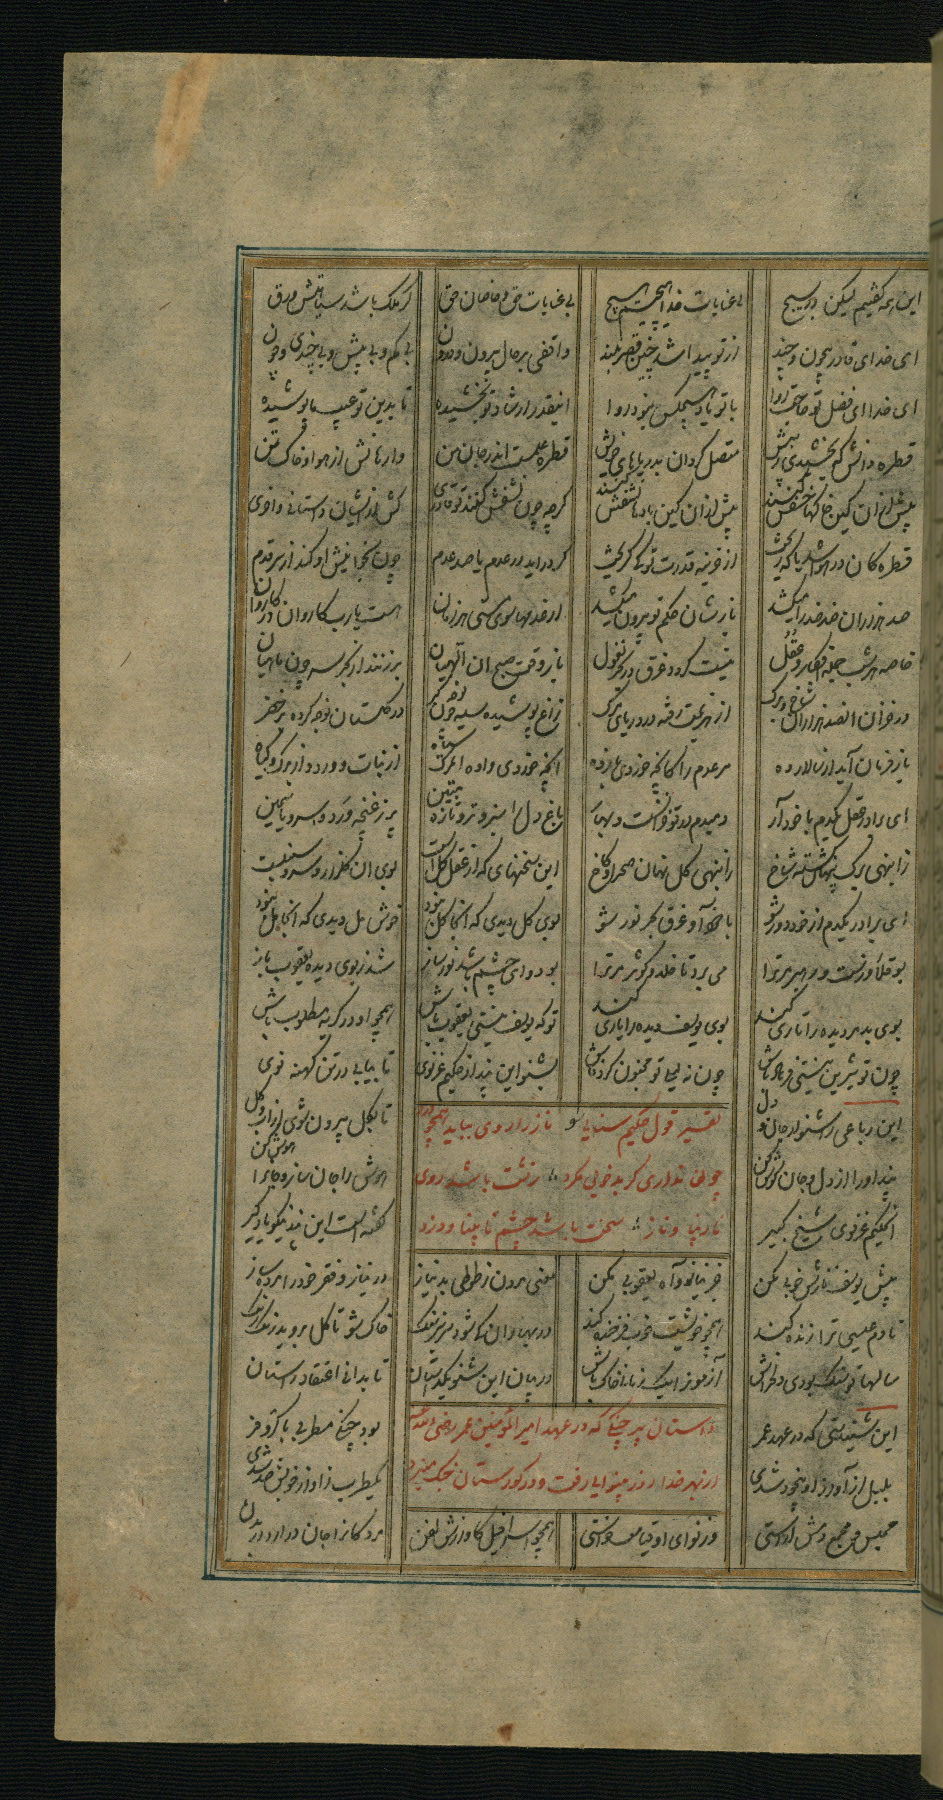 این همه گفتیم لیکن در بسیج بی عنایات خدا هیچیم هیچ بی عنایات حق و خاصان حق گر ملک باشد سیاهستش ورق
ای خدای قادر بیچون و چند از تو پیدا شد چنین قصر بلند واقفی بر حال بیرون و درون بی کم و بی بیش و بی چندی و چون
ای خدا ای فضل تو حاجت روا با تو یاد هیچکس نبود روا اینقدر ارشاد تو بخشیده تا بدین تو عیب ما پوشیده
قطره دانش که بخشیدی ز پیش متصل گردان بدریاهای خویش قطره علمست اندر جان من وارهانش از هوا و خاک تن
پیش از ان کین خاکها خسفش کنند پیش از ان کین بادها نشفش کنند گرچه چون نشفش کند تو قادری کش از ایشان واستانی واخری
قطره کان در هوا شد یا که ریخت از خزینه قدرت تو کی گریخت گر دراید در عدم یا صد عدم چون بخوانیش او کند از سر قدم
صد هزاران ضد ضد را میکشد بازشان حکم تو بیرون میکشد از عدمها سوی هستی هر زمان هست یارب کاروان در کاروان
خاصه هر شب جمله افکار و عقول نیست گردد غرق در بحر نغول باز وقت صبح ان اللهیان برزنند از بحر سر چون ماهیان
در خزان ان صد هزاران شاخ و برگ از هزیمت رفته در دریای مرگ زاغ پوشیده سیه چون نوحه گر در گلستان نوحه کرده بر خضر
باز فرمان آید از سالار ده مر عدم را کانچه خوردی باز ده انچه خوردی واده ای مرگ سیاه از نبات و ورد و از برگ و گیاه
ای برادر عقل یکدم با خود آر دمبدم در تو خزانست و بهار باغ دل را سبز و تر و تازه بین پر ز غنچه و ورد و سرو و یاسمین
ز انبهی برگ پنهان گشته شاخ ز انبهی گل نهان صحرا و کاخ این سخنهای که از عقل کلست بوی ان گلزار و سرو و سنبلست
ای برادر یکدم از خود دور شو با خود آ و غرق بحر نور شو بوی گل دیدی که انجا گل نبود جوش مل دیدی که انجا مل نبود
بو قلاوزست و رهبر مر ترا می برد تا خلد و کوثر مر ترا بو دوای چشم باشد نورساز شد ز بوی دیده یعقوب باز
بوی بد مر دیده را تاری کند بوی یوسف دیده را یاری کند تو که یوسف نیستی یعقوب باش همچو او در گریه مطلوب باش
چون تو شیرین نیستی فرهاد باش چون نه لیلی تو مجنون گرد فاش بشنو این پند از حکیم غزنوی تا بیابی در تن کهنه نوی
این رباعی را شنو از جان و دل تا بکل بیرون شوی از اب و گل
تفسیر قول حکیم سنایی ناز را روی بباید همچو ورد
پند او را از دل و جان گوش کن هوش را جان ساز و جان را هوش کن
چون نداری گرد بدخویی مگرد زشت باشد روی
انحکیم غزنوی شیخ کبیر گفته است این پند نیکو یاد گیر
نازیبا و ناز سخت باشد چشم نابینا و درد
پیش یوسف نازش خوبی مکن جز نیاز و آه یعقوبی مکن معنی مردن ز طوطی بد نیاز در نیاز و فقر خود را مرده ساز
تا دم عیسی ترا زنده کند همچو خویشت خوب و فرخنده کند در بهاران کی شود سرسبز سنگ خاک شو تا گل بروید رنگ رنگ
سالها تو سنگ بودی دلخراش آزمون را یک زمانی خاک باش در بیان این شنو یک داستان تا بدانی اعتقاد راستان
این شنیدستی که در عهد عمر بود چنگی مطربی با کر و فر
داستان پیر چنگی که در عهد امیرالمؤمنین عمر رضی الله عنه
بلبل از آواز او بیخود شدی یک طرب ز آواز خوبش صد شدی
از بهر خدا روز بینوایی رفت و در گورستان چنگ میزد
مجلس و مجمع دمش آراستی وز نوای او قیامت خاستی همچو اسرافیل کاوازش بفن مردگانرا جان درارد در بدن